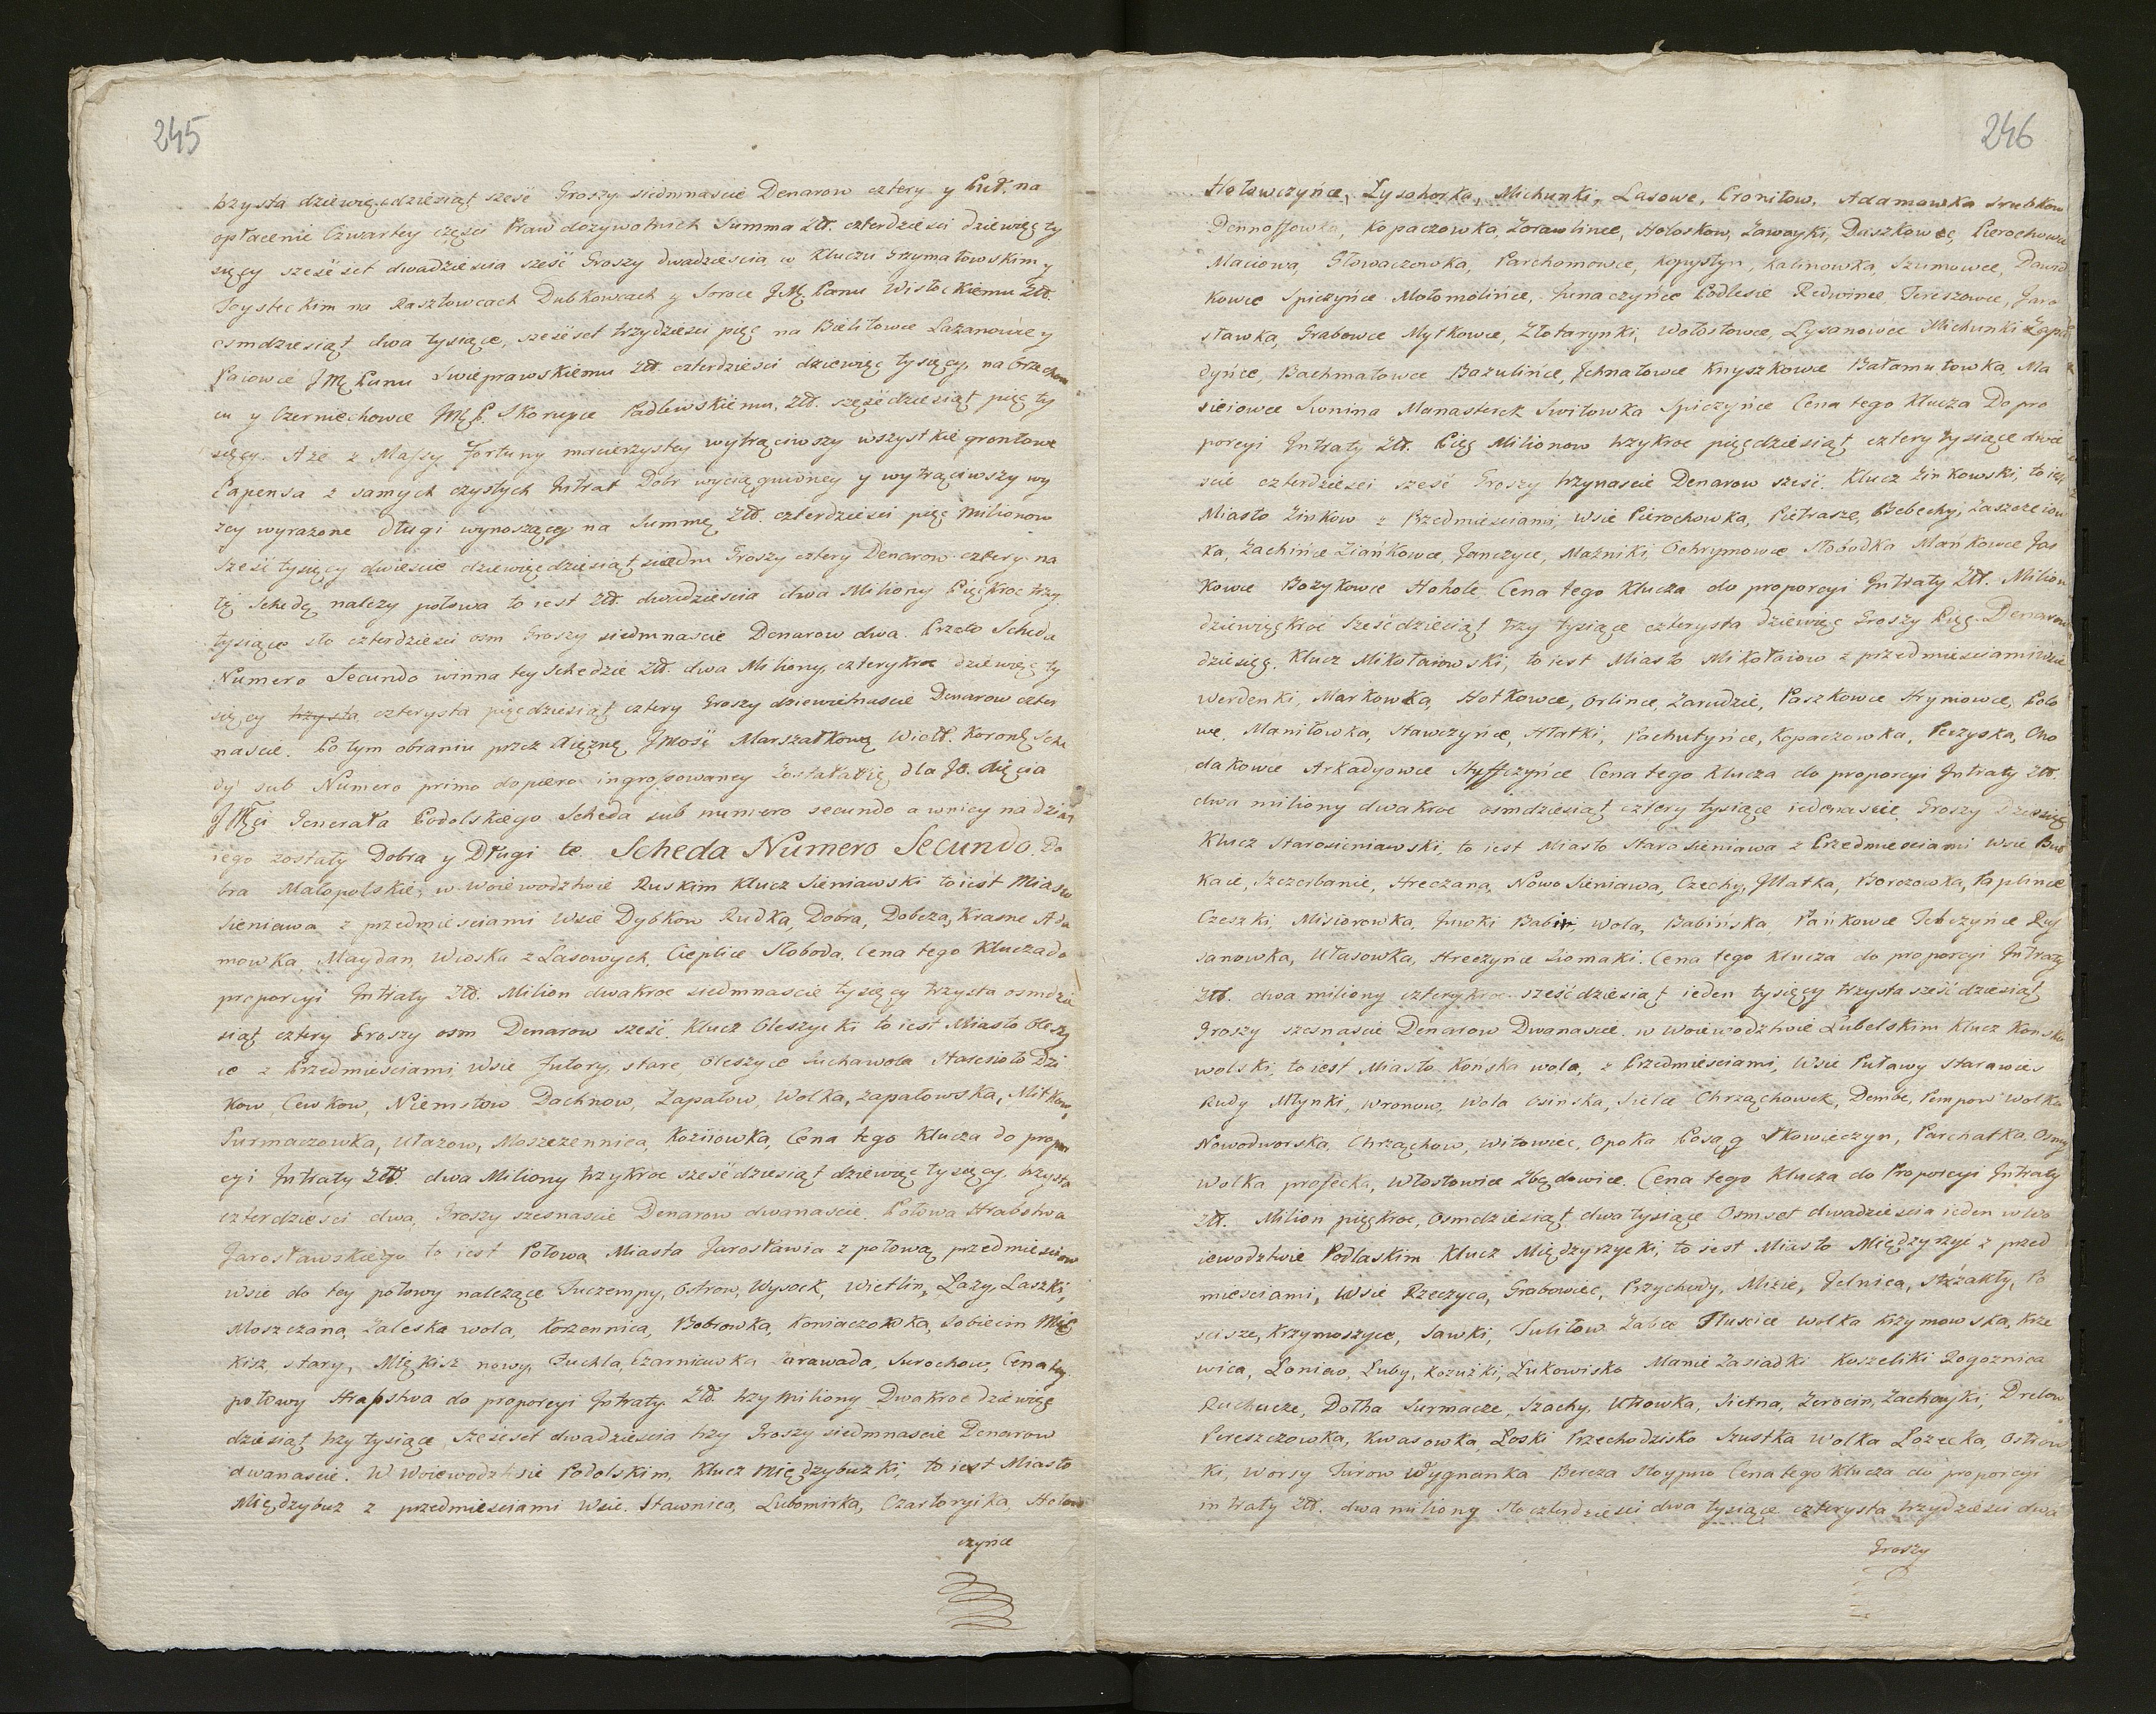 245
trzysta dziewięcdziesiąt sześć Groszy siedmnascie Denarow cztery y Puł. na
opłacenie Czwartey części Praw dożywotnich Summa Złł. czterdziesci dziewięć ty
sięcy sześćset dwadziescia sześć Groszy dwadziescia w Kluczu Grzymałowskim y
Toysteckim na Rasztowcach Dubkowcach y Soroce JMę Panu Wisłockiemu Złł.
osmdziesiąt dwa tysiące, sześćset trzydziesci pięc na Bielitowce Lazanowce y
Paiowce JMę Panu Swieprawskiemu Złł. czterdziesci dziewięc tysięcy, na Orzechow
cu y Czerniechowce JMę P. Skorupce Padlewskiemu, Złł. sześćdziesiąt pięc ty
sięcy. A że z Massy Fortuny macierzystey wytrąciwszy wszystkie gruntowe
Expensa z samych czystych Intrat Dobr wyciągnioney y wytrąciwszy wy
zey wyrażone Długi wynoszącey na Summę Złł. czterdziesci pięc Milionow
sześć tysięcy dwiescie dziewięcdziesiąt siedm Groszy cztery Denarow cztery na
tę Schedę należy połowa to iest Złł. dwadziescia dwa Miliony Pięckroc trzy
tysiące sto czterdziesci osm Groszy siedmnascie Denarow dwa. Przeto Scheda
Numero Secundo winna tey Schedzie Złł. dwa Miliony, czterykroc dziewięc ty
sięcy trzysta czterysta pięcdziesiąt cztery Groszy dziewiętnascie Denarow czter
nascie. Po tym obraniu przez Xiężnę Jmość Marszałkową Wiełł. Koronę Sche
dy sub Numero primo dopiero ingrossowaney została się dla JO. Xięcia
JMci Generała Podolskiego Scheda sub numero secundo a w niey na dział
iego zostały Dobra y Długi te. Scheda Numero Secundo. Do
bra Małopolskie, w Woiewodztwie Ruskim Klucz Sieniawski to iest Miasto
Sieniawa z przedmiesciami Wsie Dybkow Rudka, Dobra, Dobcza, Krasne Ada
mowka, Maydan, Wioska z Lasowych, Cieplice Słoboda. Cena tego Klucza do
proporcyi Intraty Złł. Milion dwakroc siedmnascie tysięcy trzysta osmdzie
siąt cztery Groszy osm Denarow sześć. Klucz Oleszycki to iest Miasto Oleszy
ce z Przedmiesciami, Wsie Futory, stare Oleszyce Suchawola Staresioło Dzi
kow, Cewkow, Niemstow Dachnow, Zapałow, Wolka, zapałowska, Mitkow,
Surmaczowka, Ułazow, Moszczennica, Koziiowka, Cena tego Klucza do propor
cyi Intraty Złł. dwa Miliony trzykroc sześćdziesiąt dziewięc tysięcy, trzysta
czterdziesci dwa, Groszy szesnascie Denarow dwanascie. Połowa Hrabstwa
Jarosławskiego to iest Połowa Miasta Jarosławia z połową przedmiesciow
wsie do tey połowy należące Tuczempy, Ostrow, Wysock, Wietlin, Łazy, Laszki,
Moszczana, Zaleska wola, Korzennica, Bobrowka, Koniaczowka, Sobiecin Mię
kisz, stary, Miękisz nowy, Tuchla, Czarniawka Zarawada, Surochow, Cena tey
połowy Hrabstwa do proporcyi Intraty. Złł. trzy miliony Dwakroc dziewięc
dziesiąt trzy tysiące, sześćset dwadziescia trzy Groszy siedmnascie Denarow
dwanascie. W Woiewodztwie Podolskim, Klucz Międzybuzki, to iest Miasto
Międzybuz z przedmiesciami Wsie. Stawnica, Lubomirka, Czartoryika, Hołow
czyńce
246
Hołowczyńce, Lysohorka, Michunki, Lasowe, Proniłow, Adamowka Srubkow
Dennoffowka, Kopaczowka, Zorawlince, Hołoskow, Zawayki, Daszkowce, Pierochowce
Maciowa, Głowaczowka, Parchomowce, Kopystyn, Kalinowka, Szumowce, Dawid
kowce Spiczyńce Mołomolińce, Junaczyńce Podlesie Redwince, Tereszowce, Jaro
sławka, Grabowce Mytkowce, Złotarynki, Wołosowce, Lysanowce Michunki Zapu
dyńce, Bachmatowce Bazulińce, Jchnatowce Knyszkowce Bałamutowka, Ma
sieiowce Swnina Manasterek Switowka Spiczyńce Cena tego Klucza Do pro
porcyi Intraty Złł. Pięc Milionow trzykroc pięcdziesiąt cztery tysiące dwie
scie czterdziesci sześć Groszy trzynascie Denarow sześć. Klucz Zinkowski, to iest
Miasto Zinkow z Przedmiesciami, Wsie Pierochowka, Pietrasze, Bebechy, Zaszczeiow
ka, Zachińce Ziańkowce, Janczyce, Maźniki, Ochrymowce Słobodka Mańkowce Jas
kowce Bożykowce Hohole. Cena tego Klucza do proporcyi Intraty Złł. Milion
dziewięckroc sześćdziesiąt trzy tysiące czterysta dziewięc Groszy Pięc Denarow
dziesięc. Klucz Mikołaiowski, to iest Miasto Mikołaiow z przedmiesciami Wsie
Werdenki, Markowka, Hotkowce, Orlince, Zarudzie, Paszkowce Hryniowce, Poło
we, Maniłowka, Hawczyńce, Hłatki, Pachutyńce, Kopaczowka, Peczyska, Cho
dakowce Arkadyowce Styffczyńce Cena tego Klucza do proporcyi Intraty Złł.
dwa miliony dwakroc osmdziesiąt cztery tysiące iedenascie Groszy Dziesięc
Klucz Starosieniawski, to iest Miasto Stara Sieniawa z Przedmiesciami Wsie But
kace, Szczerbanie, Hreczana, Nowo Sieniawa, Czechy, Jlłatka, Borczowka, Paplince
Czeszki, Misiorowka, Jwki Babin, Wola, Babińska, Pańkowce Jchczyńce Rus
sanowka, Własowka, Hreczyńce Siomaki. Cena tego Klucza do proporcyi Intraty
Złł. dwa miliony czterykroc sześćdziesiąt ieden tysięcy trzysta sześćdziesiąt
Groszy szesnascie Denarow Dwanascie. w Woiewodztwie Lubelskim Klucz Końsko
wolski, to iest Miasto Końska wola, z Przedmiesciami, Wsie Puławy Starawies
Rudy Młynki, Wronow, Wola Osińska, Sielce Chrząchowek, Dembe, Pempow Wolka
Nowodworska, Chrząchow, Witowiec, Opoka Posag Skowieczyn, Parchatka Osiny
Wolka profecka, Włostowice Zbędowice. Cena tego Klucza do Proporcyi Intraty
Złł. Milion pięckroc, Osmdziesiąt dwa tysiące Osmset dwadziescia ieden w Wo
iewodztwie Podlaskim Klucz Międzyrzycki, to iest Miasto Międzyrzyc z przed
miesciami, Wsie Rzeczyca, Grabowiec, Przychody, Misie, Jelnica, Strzakły, Po
scisze, Krzymoszyce, Sawki, Tuliłow Zabce Tłuscice wolka Krzymowska, Krze
wica, Łoniew, Łuby, Kożuzki, Łukowisko Manie Zasiadki Koszeliki Rogoznica
Ruchucze, Dołha Surmacze, Szachy, Utrowka, Sietna, Zerocin, Zachayki, Drelow
Pereszczowka, Kwasowka, Łoski Przechodzisko Szustka Wolka Łozecka, Ostrow
ki, Worsy Turow Wygnanka Bereza Stoypno Cena tego Klucza do proporcyi
intraty Złł. dwa miliony sto czterdziesci dwa tysiące czterysta trzydziesci dwa
Groszy